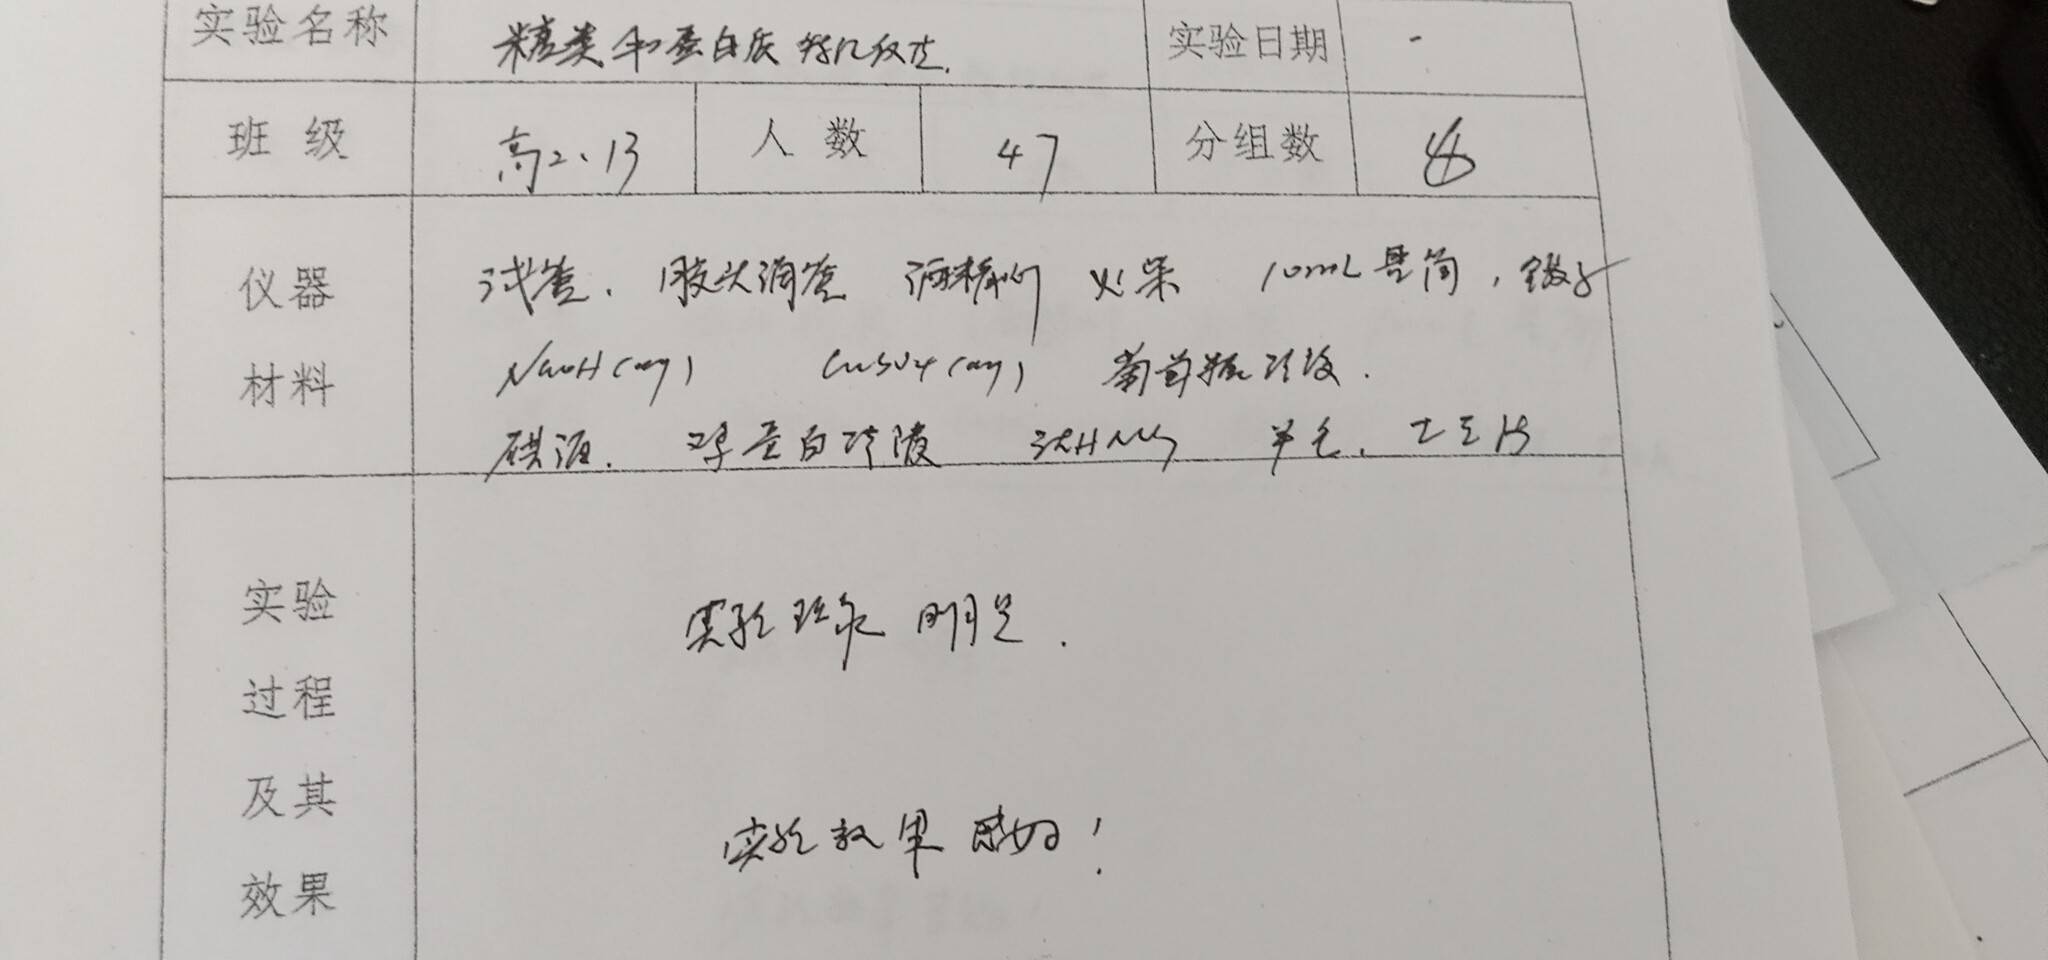 实验名称 糖类和蛋白质 特征反应. 实验日期 -
班级 高二.13 人数 47 分组数 8
试管. 胶头滴管 酒精灯 火柴 10mL量筒, 镊子
仪器
NaOH(aq) CuSO4(aq) 葡萄糖溶液.
材料
碘酒. 蛋白溶液 浓HNO3 羊毛. 土豆片
实验
实验现象 明显.
过程
及其
实验效果 良好!
效果